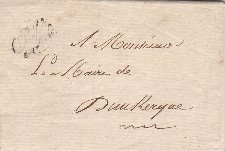 A Monsieur
Le Maire de
Dunkerque